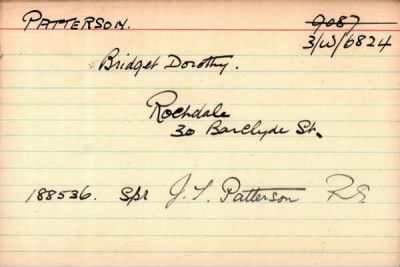 PATTERSON. 9087
3/W/6824
Bridget Dorothy.
Rochdale
30 Barclyde St.
188536. Spr J. T. Patterson RE